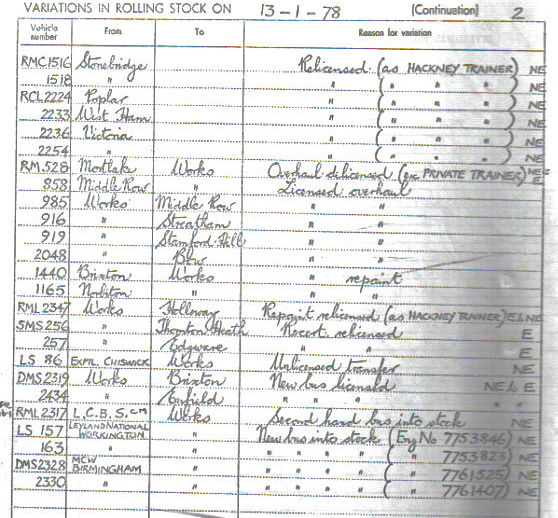 VARIATIONS IN ROLLING STOCK ON 13-1-78 (Continuation) 2
Vehicle number From To Reason for variation
RMC1516 Stonebridge Relicensed (as HACKNEY TRAINER) NE
1518 " " ( " " " ) NE
RCL2224 Poplar " ( " " " ) NE
2233 West Ham " ( " " " ) NE
2236 Victoria " ( " " " ) NE
2254 " " ( " " " ) NE
RM528 Mortlake Works Overhaul delicensed (ex PRIVATE TRAINER) NE
858 Middle Row " Licensed overhaul E
985 Works Middle Row " "
916 " Streatham " "
919 " Stamford Hill " "
2048 " Bow " "
1440 Brixton Works " repaint
1165 " " "
RML2347 Works Holloway Repaint relicensed (as HACKNEY TRAINER) E NE
SMS256 " Thornton Heath Recert. relicensed E
257 " Edgware " " E
LS 86 EXPTL CHISWICK Works Unlicensed transfer NE
DMS2319 Works Brixton New bus licensed NE & E
2434 " Enfield " " " " "
RML2317 L.C.B.S. CM Works Second hand bus into stock NE
LS 157 LEYLAND NATIONAL WORKINGTON " New bus into stock (Eng No 7753846) NE
163 " " " " " " ( " 7753823) NE
DMS2328 MCW BIRMINGHAM " " " " " ( " 7761325) NE
2330 " " " " " " ( " 7761407) NE